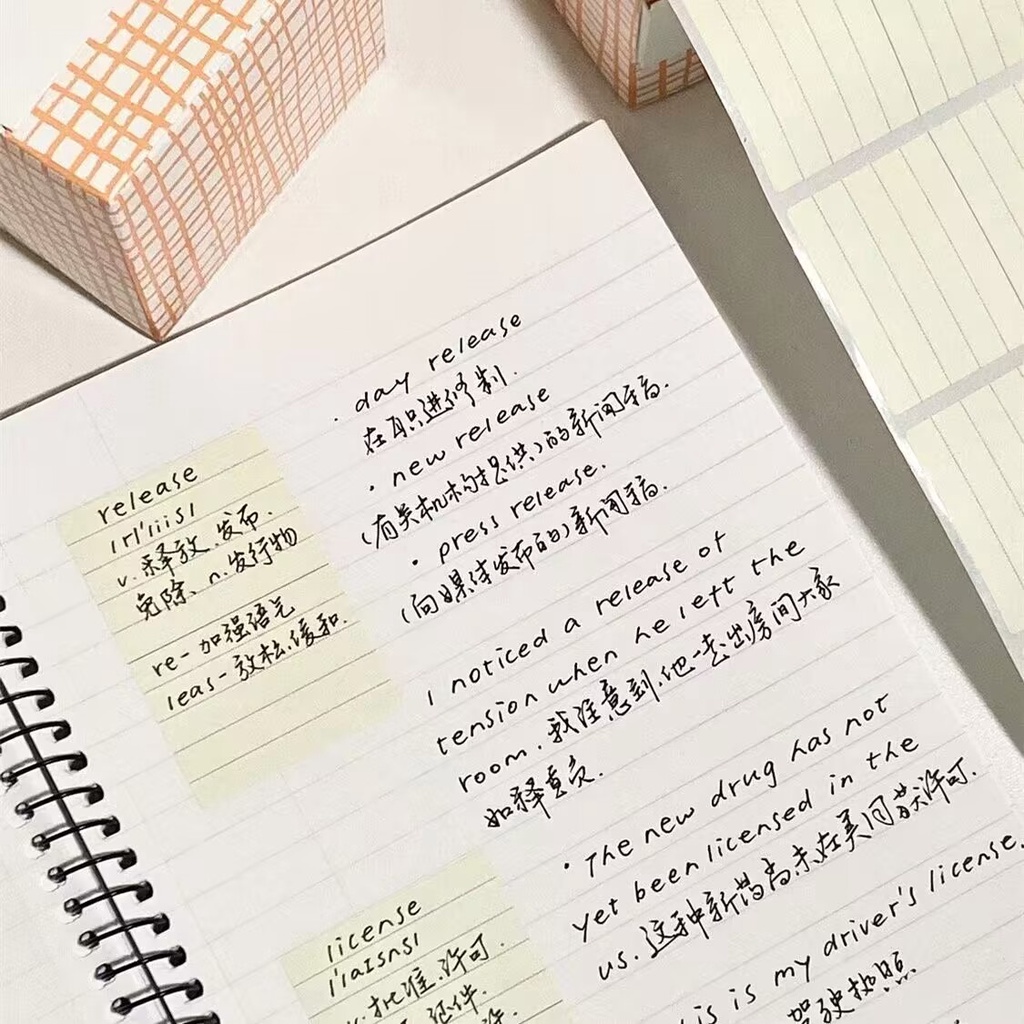 · day release
在职进修制.
· new release
(有关机构提供)的新闻稿.
· press release.
(向媒体发布的)新闻稿.
I noticed a release of
tension when he left the
room. 我注意到,他一走出房间大家
如释重负.
· The new drug has not
yet been licensed in the
us. 这种新药尚未在美国获许可.
is is my driver's license.
驾驶执照
release
/rɪ'liis/
v. 释放. 发布.
免除. n. 发行物
re- 加强语气
leas- 放松.缓和.
license
/'laɪsns/
v. 批准. 许可.
证件.